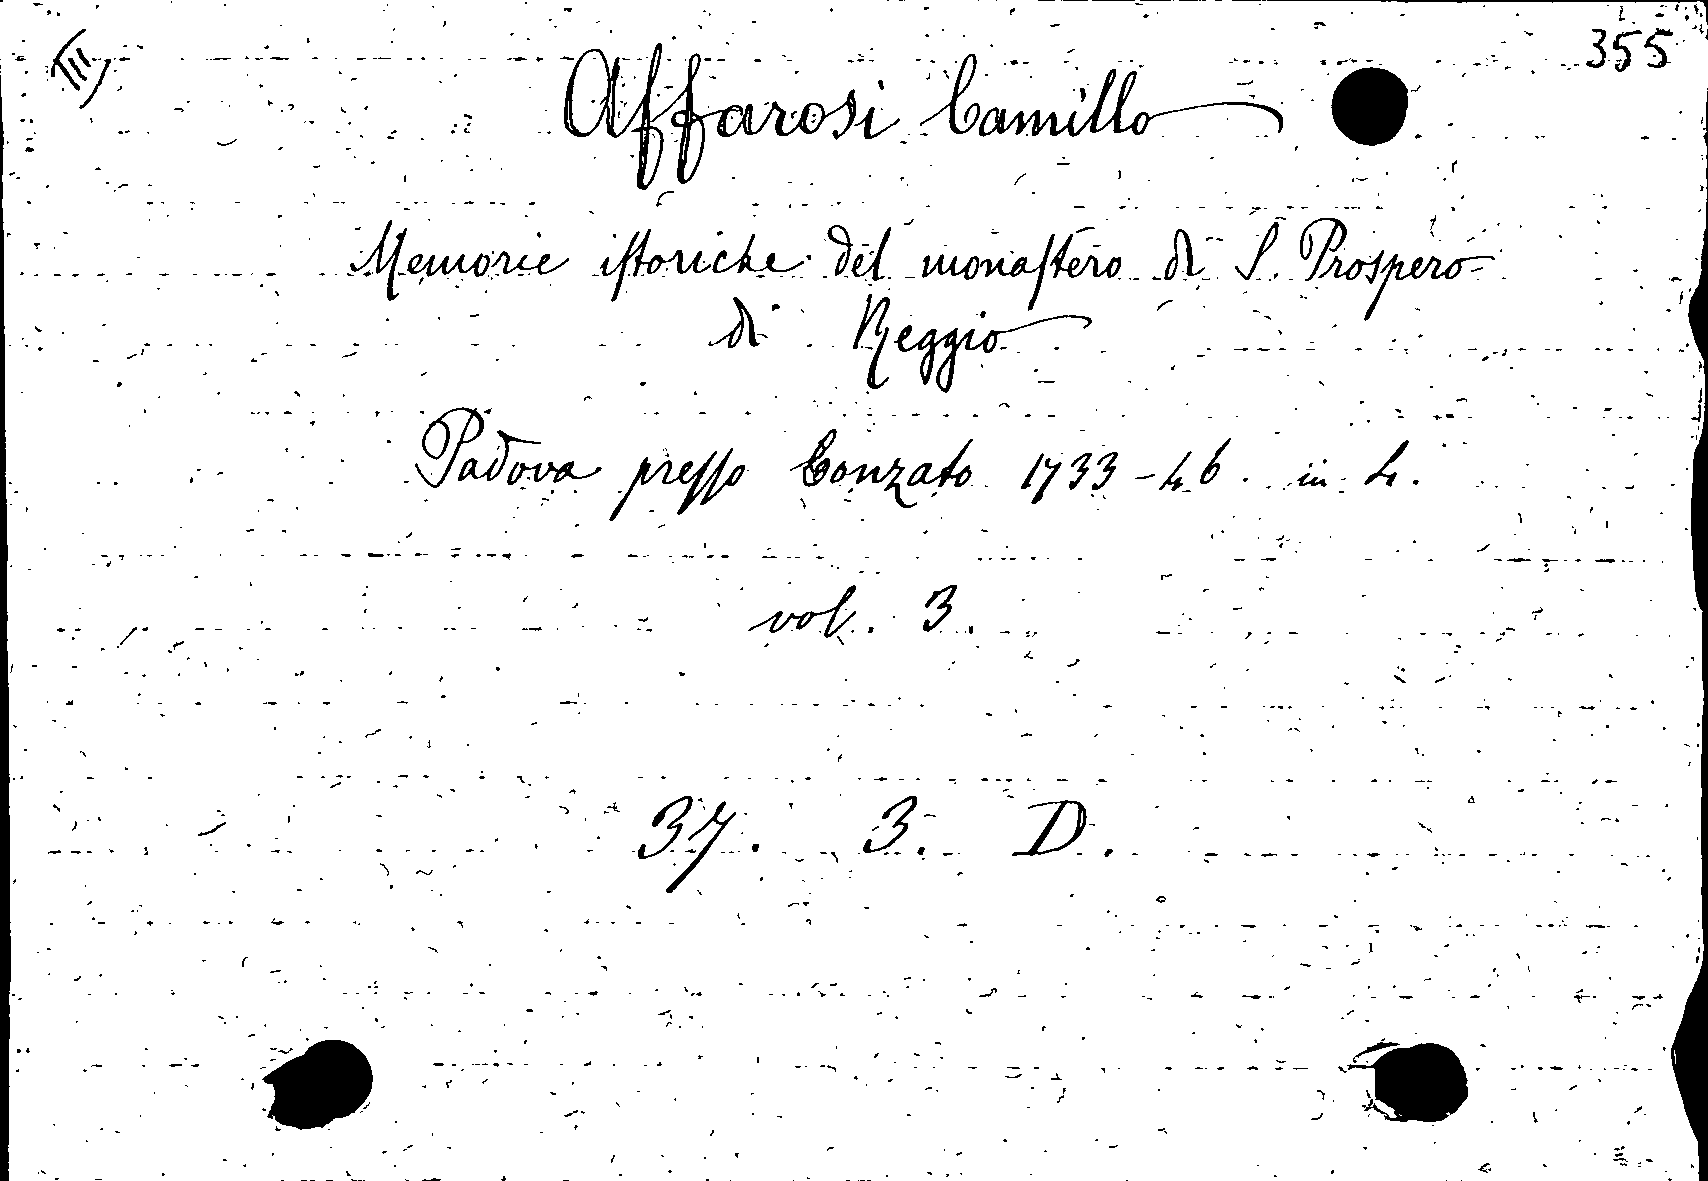 III
355
Affarosi Camillo
Memorie istoriche del monastero di S. Prospero
di Reggio
Padova presso Conzato 1733-46. in 4.
vol. 3.
37. 3. D.